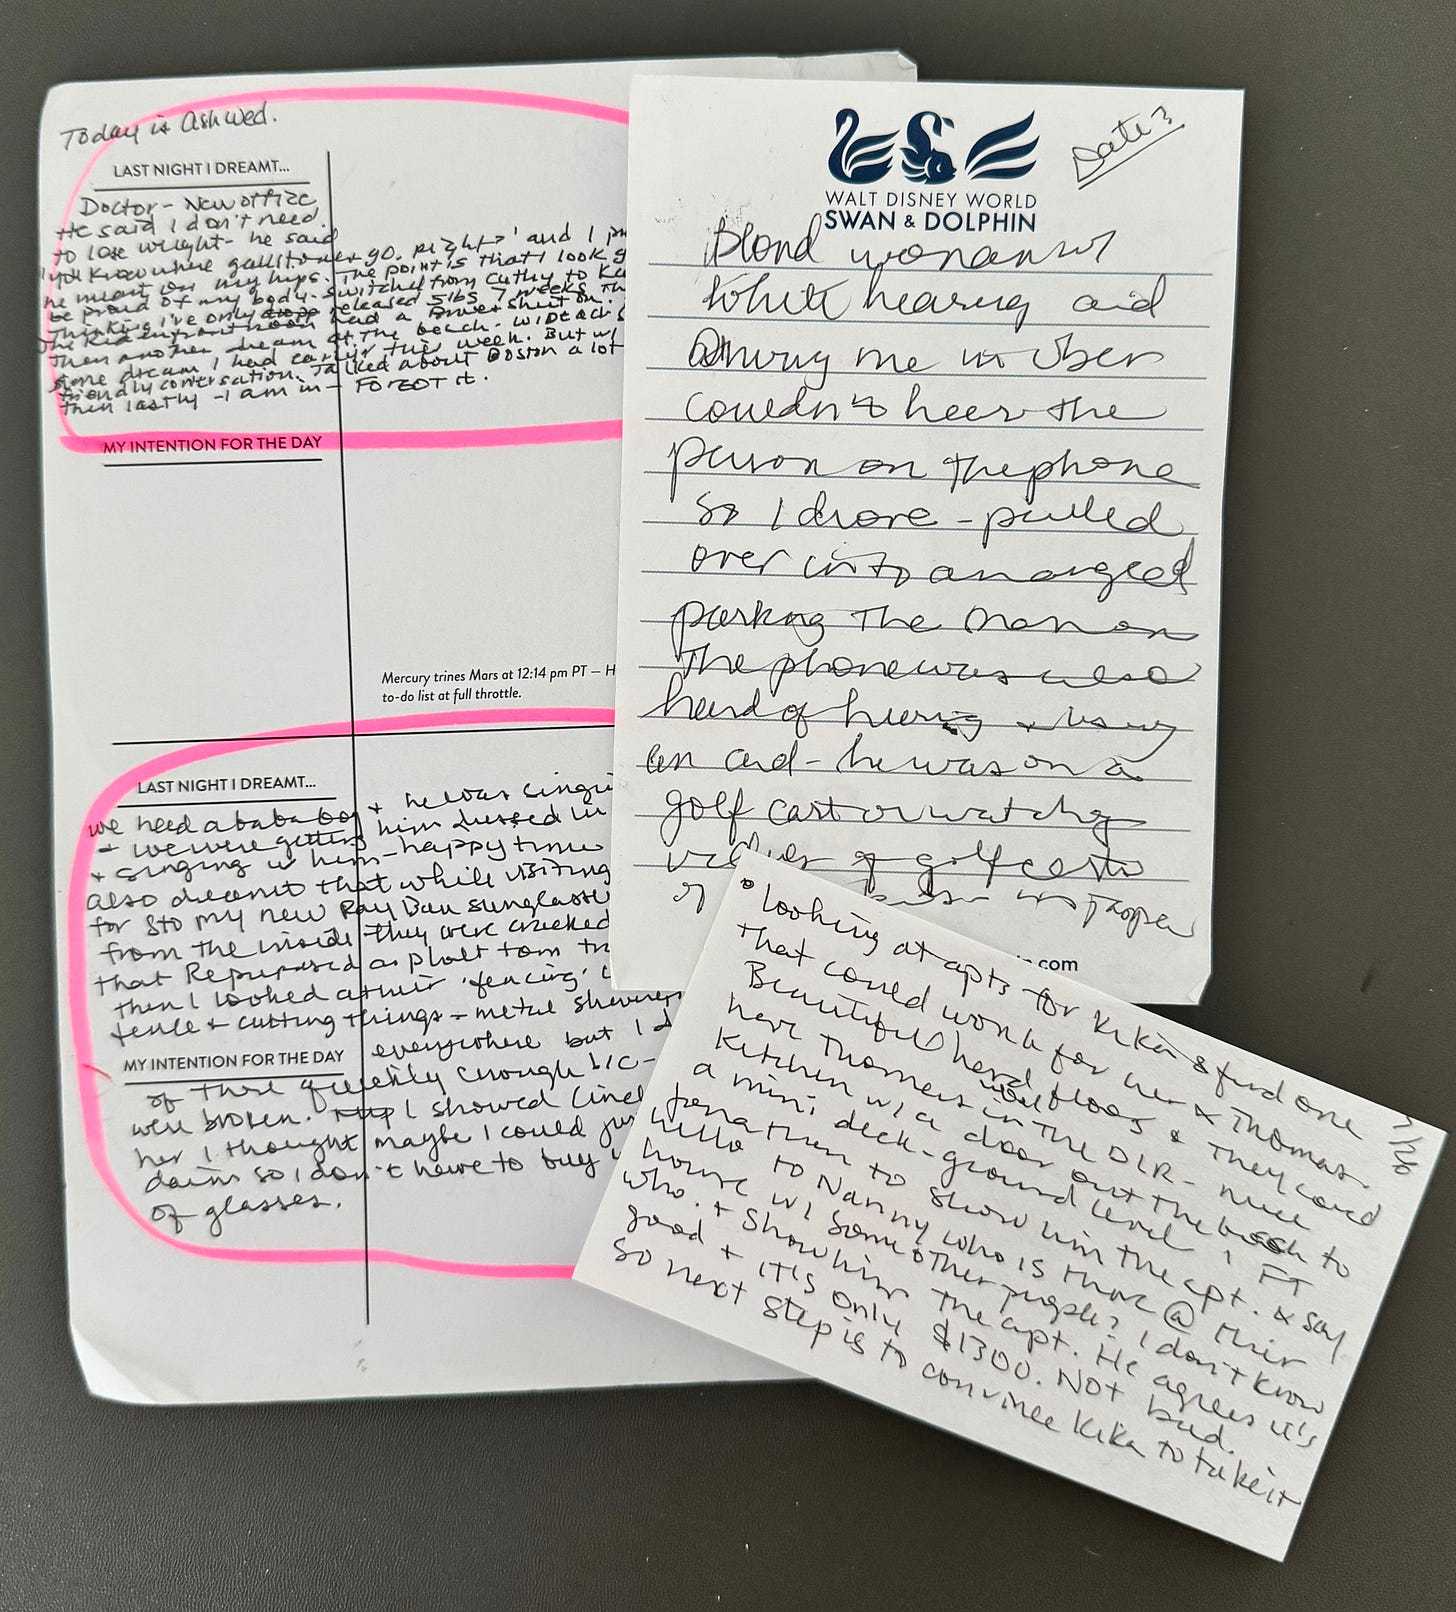 Today is Ash Wed.
LAST NIGHT I DREAMT...
Doctor - New office
He said I don't need
to lose weight - he said
'you know where gallstones go. right?' and I
he meant on my hips. The point is that I look
be proud of my body. Switched from Cathy to
Thinking I've only released 5lbs 7 weeks
The Kid in front had a shirt on.
Then another dream at the beach.
same dream I had earlier this week. But
friendly conversation. Talked about Boston a lot
then lastly - I am in - FORGOT it.
MY INTENTION FOR THE DAY
Mercury trines Mars at 12:14 pm PT — H
to-do list at full throttle.
LAST NIGHT I DREAMT...
we had a baba boy + he was
+ we were getting him dressed in
+ singing w him - happy time
also dreamt that while visiting
for Sto my new Ray Ban sunglasses
from the inside they were cracked
that Repurposed a plvt tom
then I looked at their 'fencing'
fence + cutting things - metal
everywhere but I
MY INTENTION FOR THE DAY
of there quickly enough b/c -
were broken. I showed
her I thought maybe I could
so I don't have to buy
of glasses.
WALT DISNEY WORLD
SWAN & DOLPHIN
Date?
Blond woman w/
White hearing aid
driving me in Uber
couldn't heer the
person on the phone
So I drove - pulled
over into an angled
parking The man on
The phone was also
heard of hearing + using
an aid - he was on a
golf cart or watching
videos of golf carts
of
.com
7/26
° Looking at apts for Kika & find one
that could work for her & Thomas.
Beautiful hard wood floors & They could
have Thomas in the DLR - nice
Kitchen w/ a door out the back to
a mini deck - ground level, FT
Jonathan to show him the apt. & say
hello to Nanny who is there @ their
house w/ some other people? I don't know
who. + Show him the apt. He agrees it's
good + it's only $1300. Not bad.
So next step is to convince Kika to take it